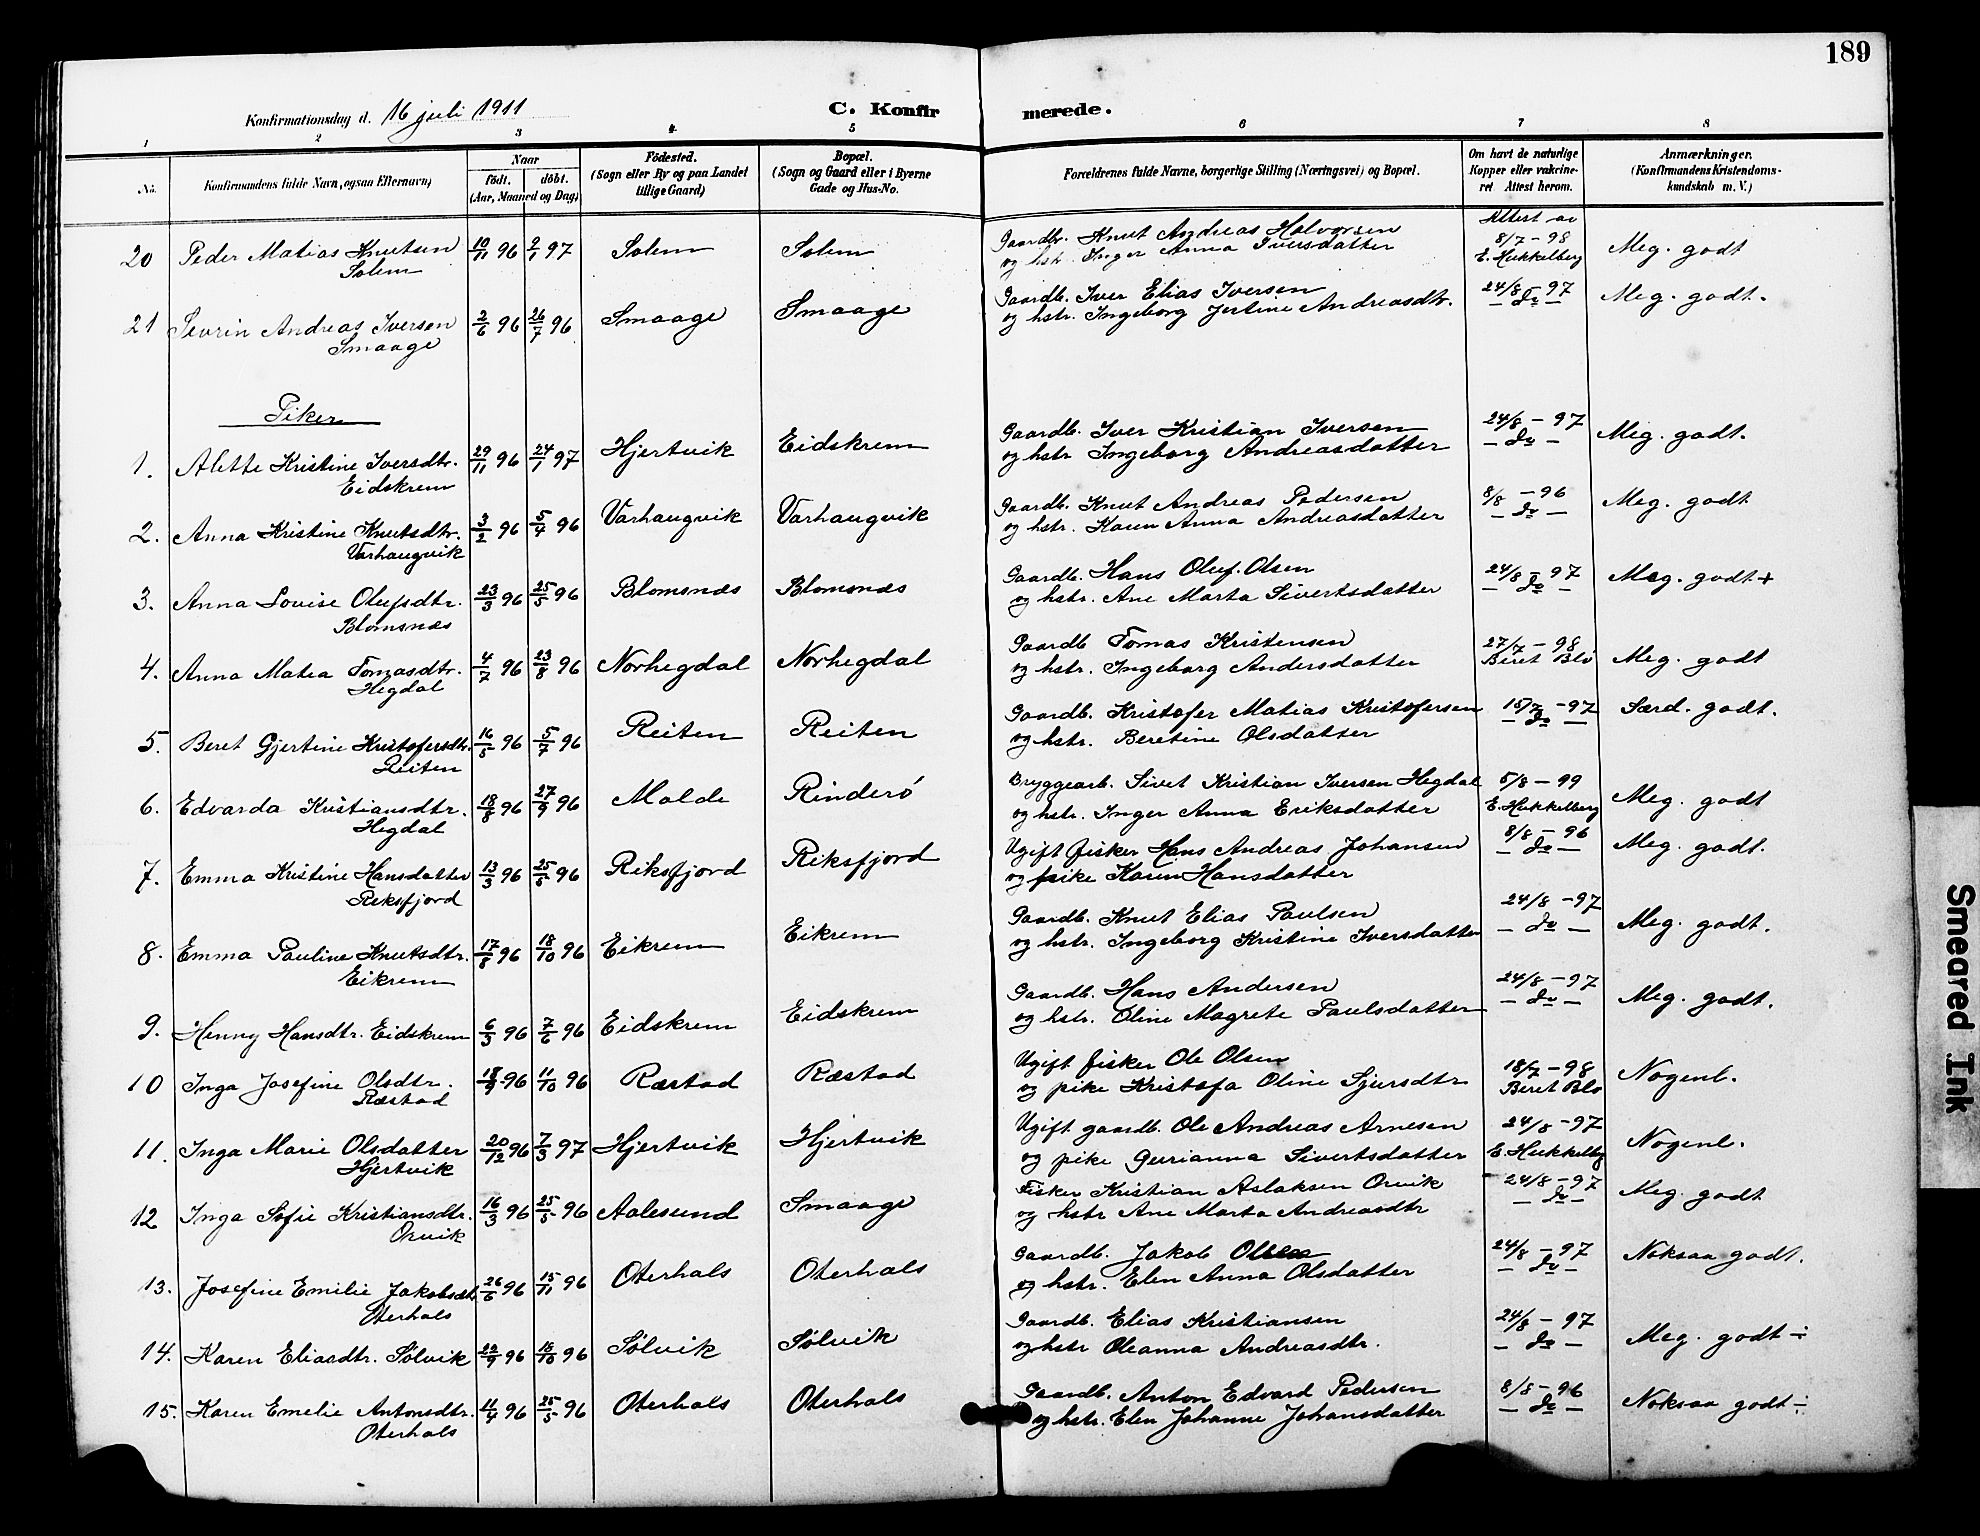 189
Konfirmationsdag d. 16 juli 1911
C. Konfirmerede.
1 2 3 4 5 6 7 8
No.
Konfirmandens fulde Navn, ogsaa Efternavn)
Naar
født. døbt.
(Aar, Maaned og Dag)
Födested.
(Sogn eller By og paa Landet
tillige Gaard)
Bopæl.
(Sogn og Gaard eller i Byerne
Gade og Hus-No.
Forældrenes fulde Navne, borgerlige Stilling (Næringsvei) og Bopæl.
Om havt de naturlige
Kopper eller vakcine-
ret Attest herom.
Anmærkninger.
(Konfirmandens Kristendoms-
kundskab m. V.)
20 Peder Matias Knutsen 10/11 96 2/1 97 Solem Solem Gaardbr. Knut Andreas Halvorsen Attest av 8/7-98 Meg. godt
Solem og hstr. Inger Anna Iversdatter E. Hukkelberg
21 Sevrin Andreas Iversen 2/6 96 26/7 96 Smaage Smaage Gaardb. Iver Elias Iversen 24/8-97 Meg. godt.
Smaage og hstr. Ingeborg Jertine Andreasdtr. — do —
Piker
1. Alette Kristine Iversdtr. 29/11 96 24/1 97 Hjertvik Eidskrem Gaardb. Iver Kristian Iversen 24/8-97 Meg. godt.
Eidskrem og hstr Ingeborg Andreasdatter — do —
2. Anna Kristine Knutsdtr. 3/2 96 5/4 96 Varhaugvik Varhaugvik Gaardb. Knut Andreas Pedersen 8/8-96 Meg. godt
Varhaugvik og hstr. Karen Anna Andreasdatter — do —
3. Anna Lovise Olufsdtr. 23/3 96 25/5 96 Blomsnæs Blomsnæs Gaardb. Hans Oluf Olsen 24/8-97 Meg. godt+
Blomsnæs og hstr. Ane Marta Sivertsdatter — do —
4. Anna Matea Tomasdtr. 4/7 96 23/8 96 Norhegdal Norhegdal Gaardb Tomas Kristensen 27/7-98 Meg. godt
Hegdal og hstr. Ingeborg Andersdatter Beret Blø
5. Beret Gjertine Kristofersdtr. 16/5 96 5/7 96 Reiten Reiten Gaardb. Kristofer Matias Kristofersen 15/7-97 Særd. godt.
Reiten og hstr. Beretine Olsdatter — do —
6. Edvarda Kristiansdtr. 18/8 96 27/9 96 Molde Rinderø Bryggearb. Sivet Kristian Iversen Hegdal 5/8-99 Meg. godt
Hegdal og hstr. Inger Anna Eriksdatter E. Hukkelberg
7. Emma Kristine Hansdatter 13/3 96 25/5 96 Riksfjord Riksfjord Ugift fisker Hans Andreas Johansen 8/8-96 Meg. godt.
Riksfjord og pike Karen Hansdatter — do —
8. Emma Pauline Knutsdtr. 17/8 96 18/10 96 Eikrem Eikrem Gaardb. Knut Elias Paulsen 24/8-97 Meg. godt.
Eikrem og hstr. Ingeborg Kristine Iversdatter — do —
9. Henny Hansdtr. Eidskrem 6/3 96 7/6 96 Eidskrem Eidskrem Gaardb. Hans Andersen 24/8-97 Meg. godt.
og hstr. Oline Magrete Paulsdatter — do —
10 Inga Josefine Olsdtr. 96 11/10 96 Ræstad Ræstad Ugift fisker Ole Olsen 18/7-98 Nogenl.
Ræstad og pike Kristofa Oline Sjursdtr Beret Blø
11. Inga Marie Olsdatter 20/12 96 7/3 97 Hjertvik Hjertvik Ugift gaardb. Ole Andreas Arnesen 24/8-97 Nogenl.
Hjertvik og pike Gurianna Sivertsdatter E. Hukkelbg
12 Inga Sofie Kristiansdtr. 16/3 96 25/5 96 Aalesund Smaage Fisker Kristian Aslaksen Orvik 24/8-97 Meg. godt
Orvik og hstr Ane Marta Andreasdtr — do —
13. Josefine Emilie Jakobsdtr. 26/6 96 15/11 96 Oterhals Oterhals Gaardb. Jakob Olsen 24/8-97 Noksaa godt.
Oterhals og hstr. Elen Anna Olsdatter — do —
14. Karen Eliasdtr. Sølvik 22/9 96 18/10 96 Sølvik Sølvik Gaardb. Elias Kristiansen 24/8-97 Meg. godt ÷
og hstr Oleanna Andreasdtr. — do —
15. Karen Emelie Antonsdtr. 11/4 96 25/5 96 Oterhals Oterhals Gaardb. Anton Edvard Pedersen 8/8-96 Noksaa godt ÷
Oterhals og hstr. Elen Johanne Johansdatter — do —
Smeared Ink